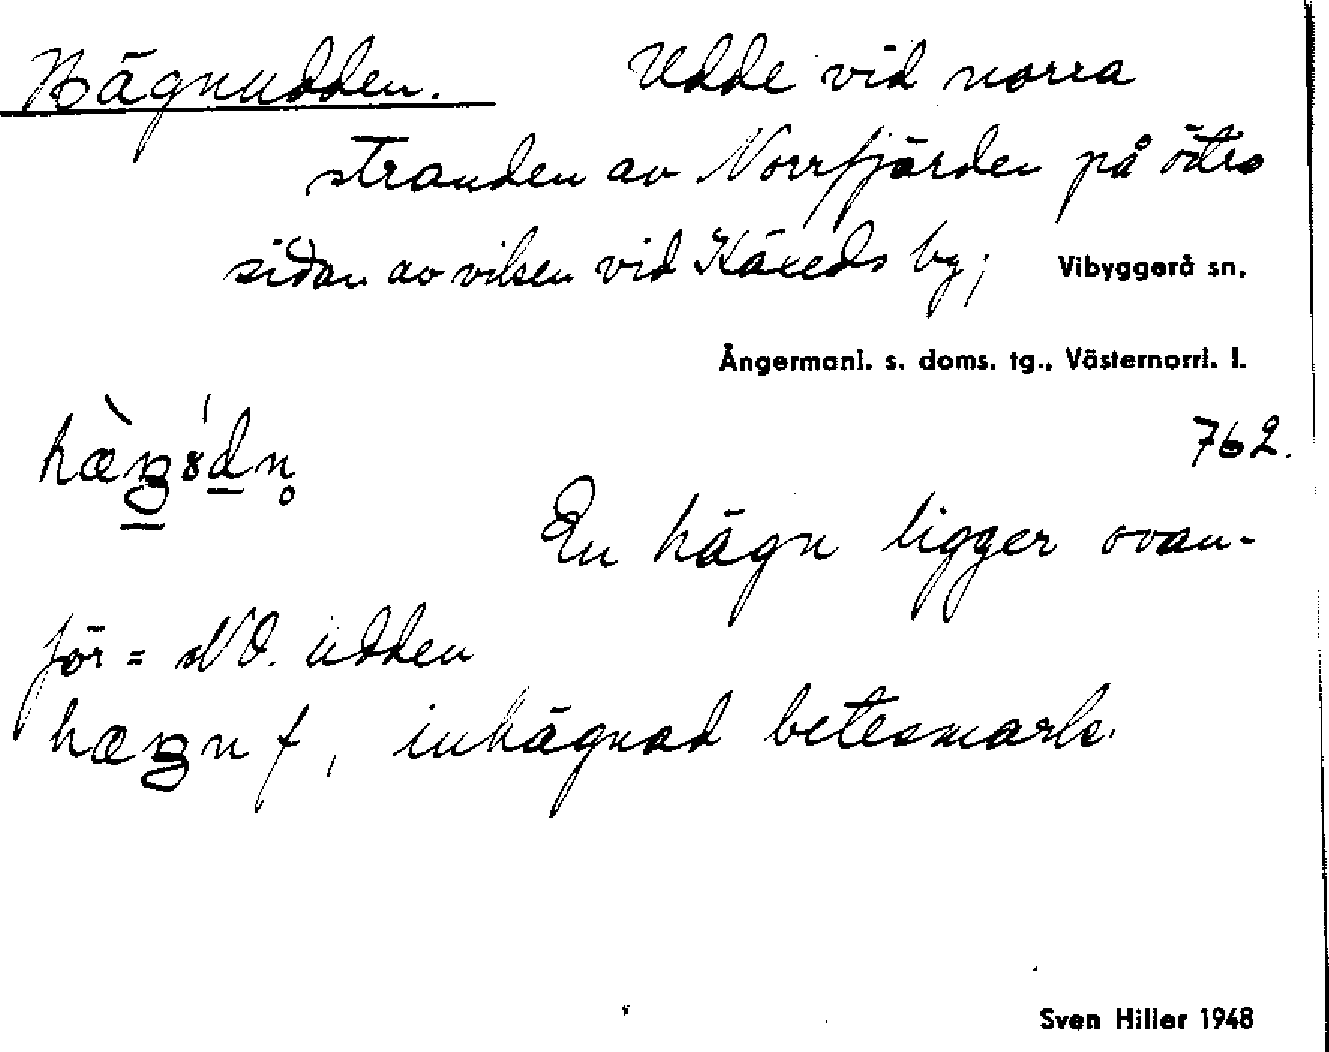 Hägnudden. Udde vid norra
stranden av Norrfjärden på östra
sidan av viken vid Käxeds by; Vibyggerå sn.
Ångermanl. s. doms. tg., Västernorrl. l.
762.
En hägn ligger ovan-
för = NO. udden
f, inhägnad betesmark.
Sven Hiller 1948